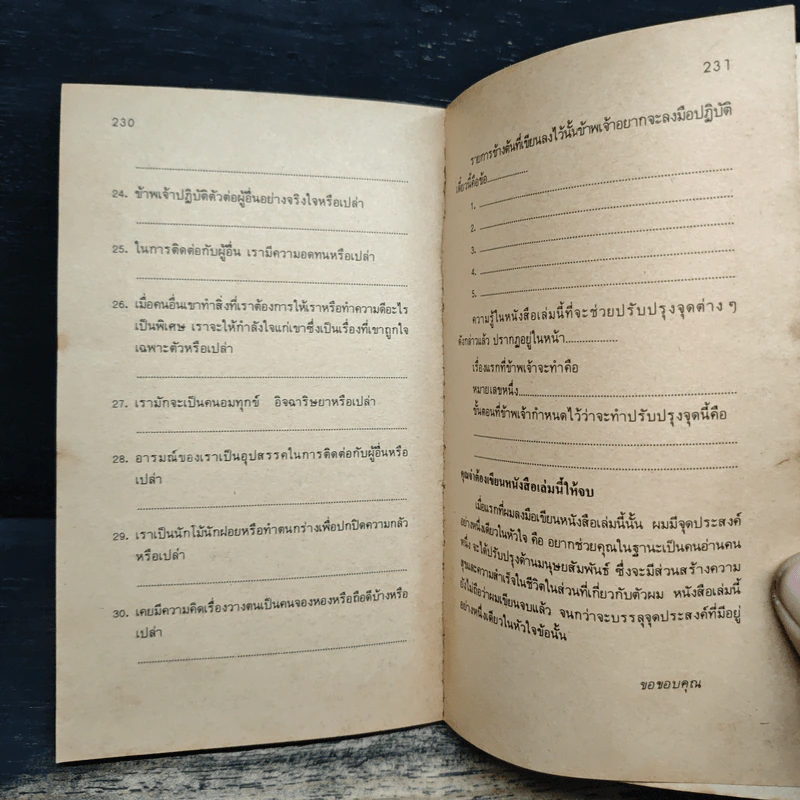 230
24. ข้าพเจ้าปฏิบัติตัวต่อผู้อื่นอย่างจริงใจหรือเปล่า
25. ในการติดต่อกับผู้อื่น เรามีความอดทนหรือเปล่า
26. เมื่อคนอื่นเขาทำสิ่งที่เราต้องการให้เราหรือทำความดีอะไร
เป็นพิเศษ เราจะให้กำลังใจแก่เขาซึ่งเป็นเรื่องที่เขาถูกใจ
เฉพาะตัวหรือเปล่า
27. เรามักจะเป็นคนอมทุกข์ อิจฉาริษยาหรือเปล่า
28. อารมณ์ของเราเป็นอุปสรรคในการติดต่อกับผู้อื่นหรือ
เปล่า
29. เราเป็นนักโม้นักฝอยหรือทำตนกร่างเพื่อปกปิดความกลัว
หรือเปล่า
30. เคยมีความคิดเรื่องวางตนเป็นคนจองหองหรือถือดีบ้างหรือ
เปล่า
231
รายการข้างต้นที่เขียนลงไว้นั้นข้าพเจ้าอยากจะลงมือปฏิบัติ
เดี๋ยวนี้คือข้อ............
1.
2.
3.
4.
5.
ความรู้ในหนังสือเล่มนี้ที่จะช่วยปรับปรุงจุดต่าง ๆ
ดังกล่าวแล้ว ปรากฏอยู่ในหน้า...............
เรื่องแรกที่ข้าพเจ้าจะทำคือ
หมายเลขหนึ่ง
ขั้นตอนที่ข้าพเจ้ากำหนดไว้ว่าจะทำปรับปรุงจุดนี้คือ
คุณจ๋าต้องเขียนหนังสือเล่มนี้ให้จบ
เมื่อแรกที่ผมลงมือเขียนหนังสือเล่มนี้นั้น ผมมีจุดประสงค์
อย่างหนึ่งเดียวในหัวใจ คือ อยากช่วยคุณในฐานะเป็นคนอ่านคน
หนึ่ง จะได้ปรับปรุงด้านมนุษยสัมพันธ์ ซึ่งจะมีส่วนสร้างความ
สุขและความสำเร็จในชีวิตในส่วนที่เกี่ยวกับตัวผม หนังสือเล่มนี้
ยังไม่ถือว่าผมเขียนจบแล้ว จนกว่าจะบรรลุจุดประสงค์ที่มีอยู่
อย่างหนึ่งเดียวในหัวใจข้อนั้น
ขอขอบคุณ